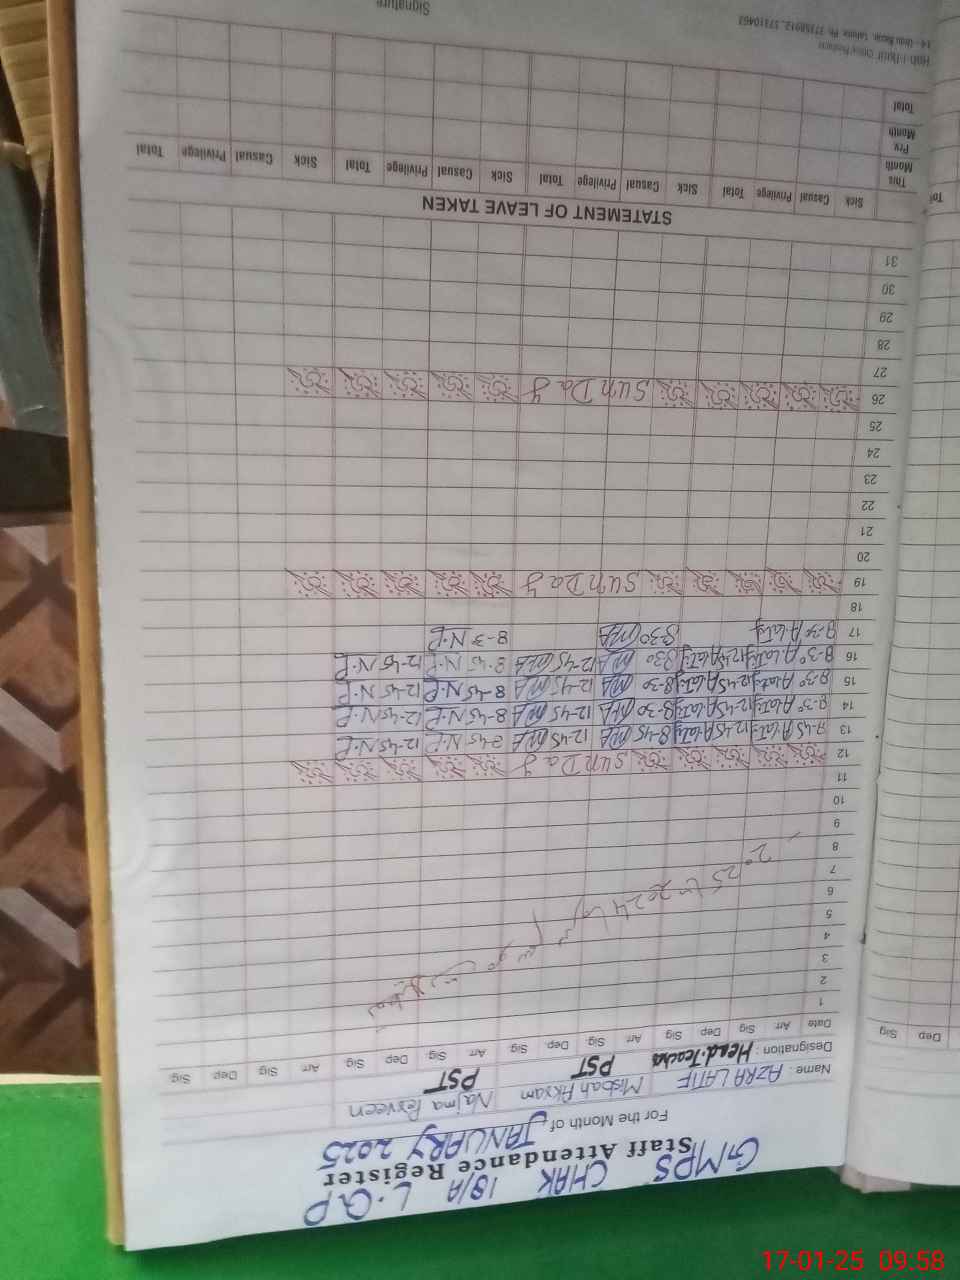 GMPS CHAK 18/A L.Q.P
Staff Attendance Register
For the Month of JANUARY 2025
Name : AZRA LATIF Misbah Akram Najma Perveen
Designation : Head-Teacher PST PST
Date Arr Sig Dep Sig Arr Sig. Dep. Sig Arr Sig. Dep Sig Arr Sig Dep. Sig
1
2
3
4
5
6
7
8
9
10
11
12 SUNDay
13 8-45 A Latif 12-45 A Latif 8-45 MA 12-45 MA 8-45 N.P 12-45 N.P
14 8-30 A Latif 12-45 A Latif 8-30 MA 12-45 MA 8-45 N.P 12-45 N.P
15 8-30 A Latif 12-45 A Latif 8-30 MA 12-45 MA 8-45 N.P 12-45 N.P
16 8-30 A Latif 12-45 A Latif 8-30 MA 12-45 MA 8-45 N.P 12-45 N.P
17 8-30 A Latif 8-30 MA 8-3 N.P
18
19 SUNDay
20
21
22
23
24
25
26 SUNDay
27
28
29
30
31
STATEMENT OF LEAVE TAKEN
Sick Casual Privilege Total Sick Casual Privilege Total Sick Casual Privilege Total Sick Casual Privilege Total
This Month
Prv Month
Total
Signature
Dep Sig
Tot
17-01-25 09:58